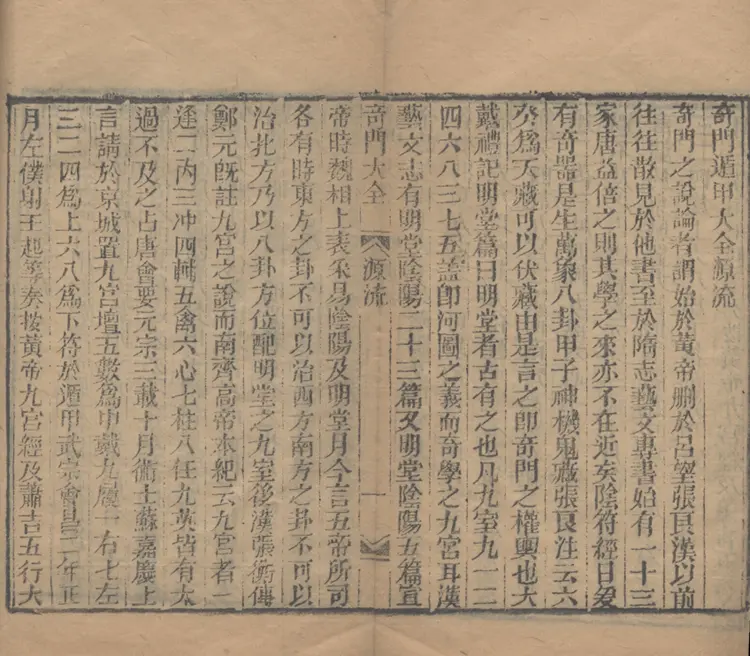 奇門遁甲大全源流
奇門之說論者謂始於黃帝刪於呂望張良漢以前
往往散見於他書至於隋志藝文專書始有一十三
家唐益倍之則其學之來亦不在近矣陰符經曰爰
有奇器是生萬象八卦甲子神機鬼藏張良注云六
癸為天藏可以伏藏由是言之卽奇門之權輿也大
戴禮記明堂篇曰明堂者古有之也凡九室九一二
四六八三七五葢卽河圖之義而奇學之九宮耳漢
藝文志有明堂陰陽二十三篇又明堂陰陽五篇宣
奇門大全 源流 一
帝時魏相上表釆易陰陽及明堂月令言五帝所司
各有時東方之卦不可以治西方南方之卦不可以
治北方乃以八卦方位配明堂之九室後漢張衡傳
鄭元旣註九宮之說而南齊高帝本紀云九宮者一
逢一丙三冲四輔五禽六心七柱八任九英皆有太
過不及之占唐會要元宗三載十月術士蘇嘉慶上
言請於京城置九宮壇五數為中戴九履一右七左
三二四為上六八為下符於遁甲武宗會昌二年正
月左僕射王起等奏按黃帝九宮經及蕭吉五行大